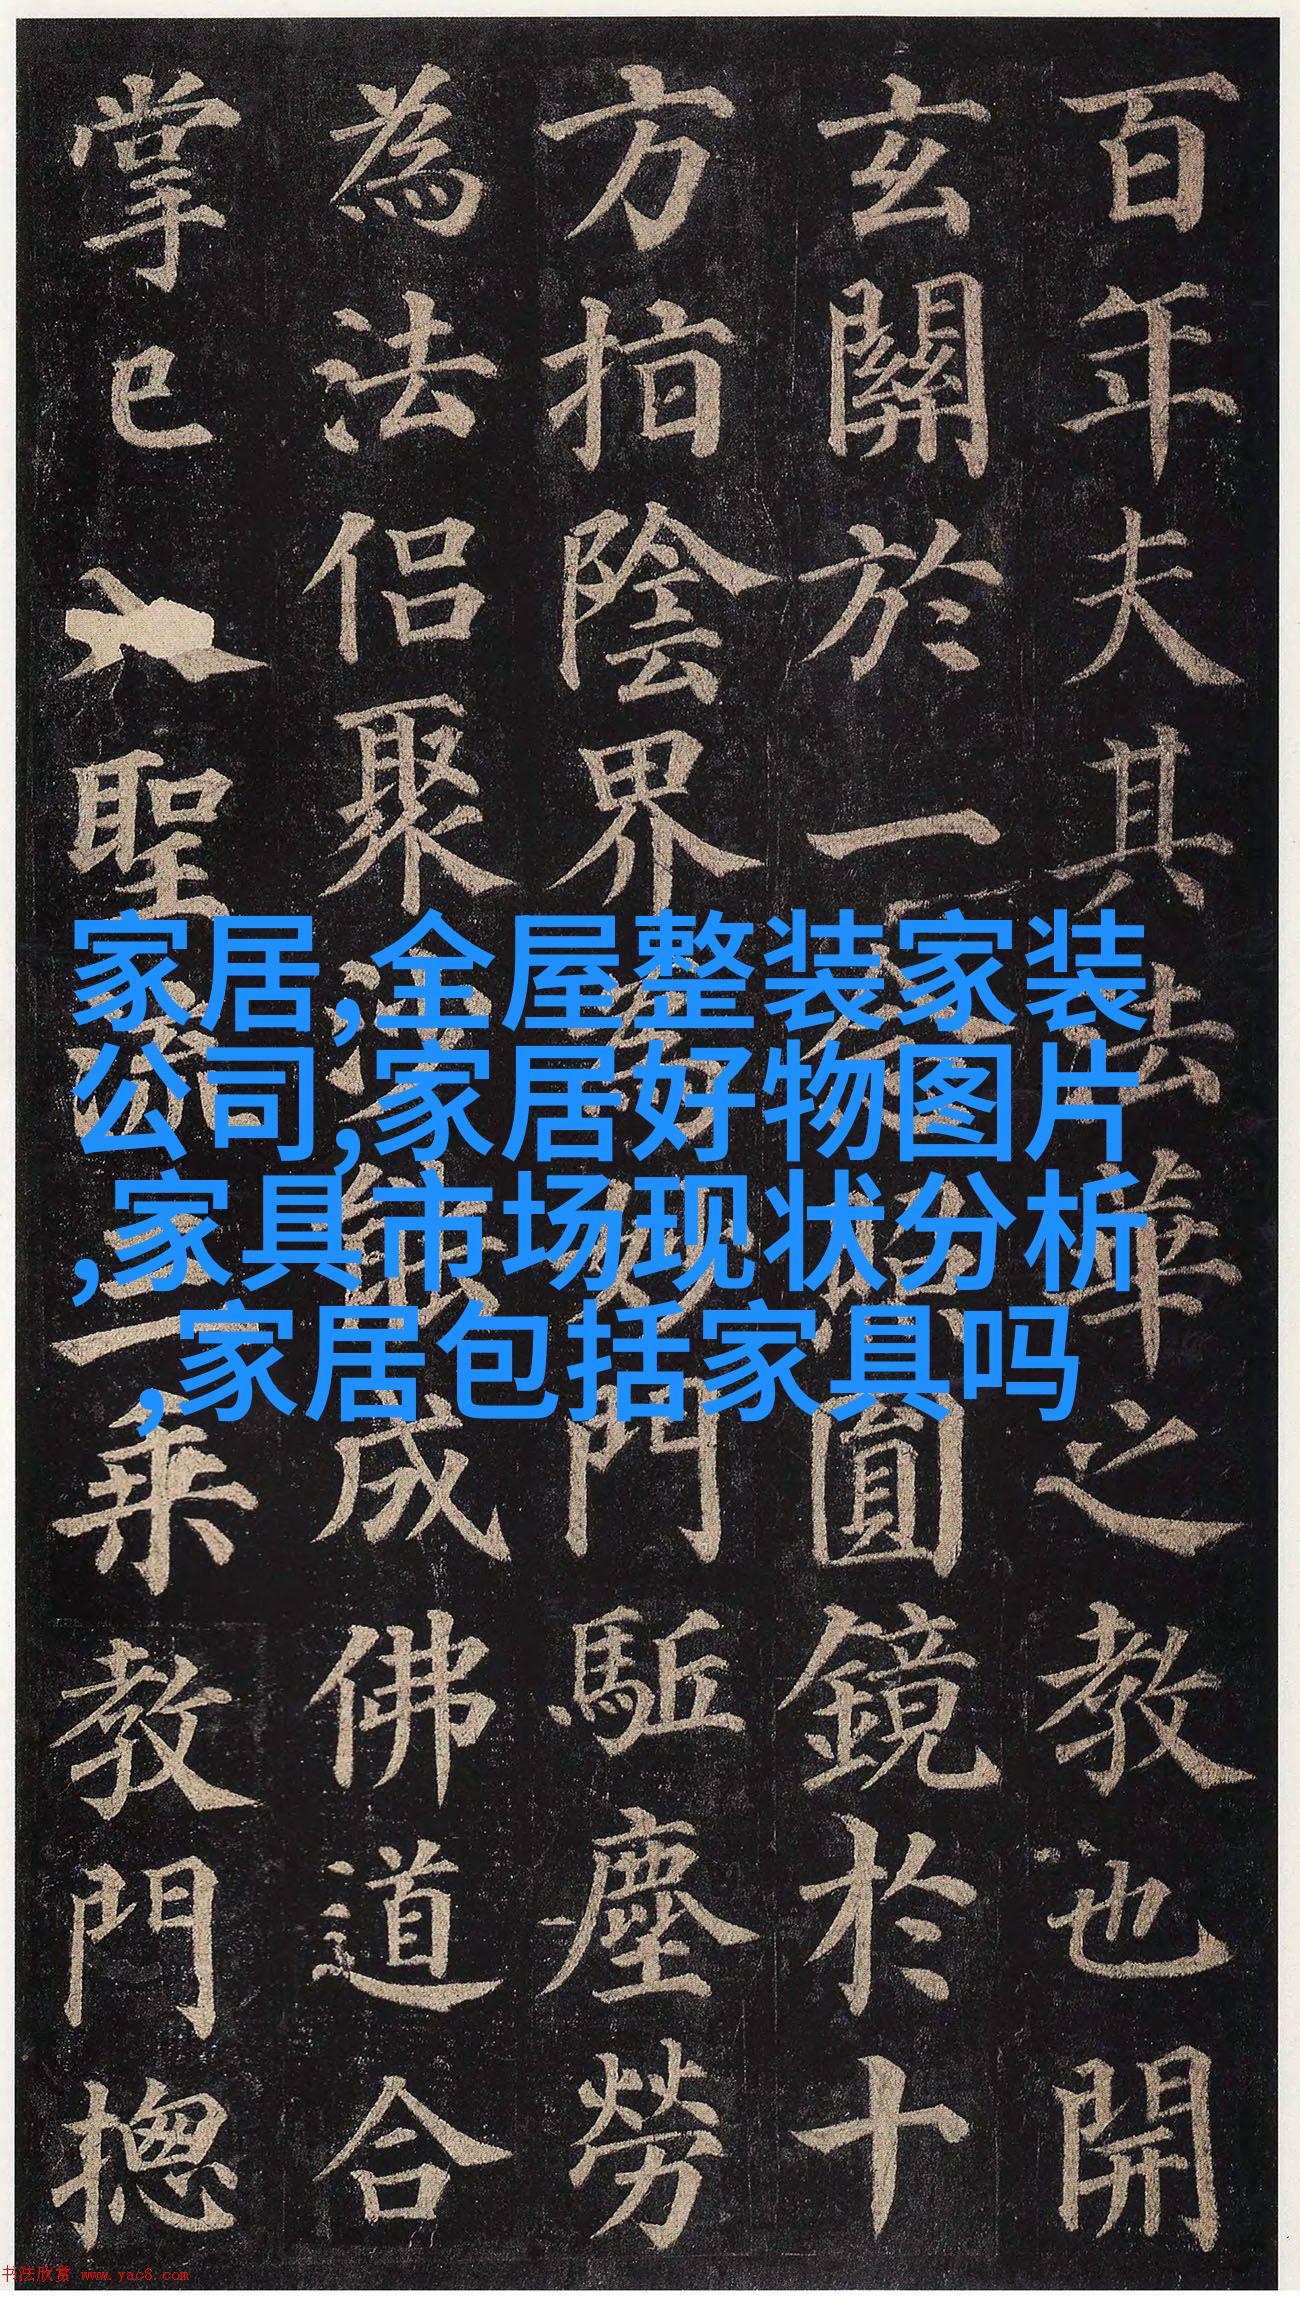 百年夫其法華之教也開
玄關於一念照圓鏡於十
方指陰界為妙門駈塵勞
為法侶聚沙能成佛道合
掌已入聖流三乘教門摠
家居,全屋整装家装
公司,家居好物图片
,家具市场现状分析
,家居包括家具吗
书法欣赏 www.yac8.com